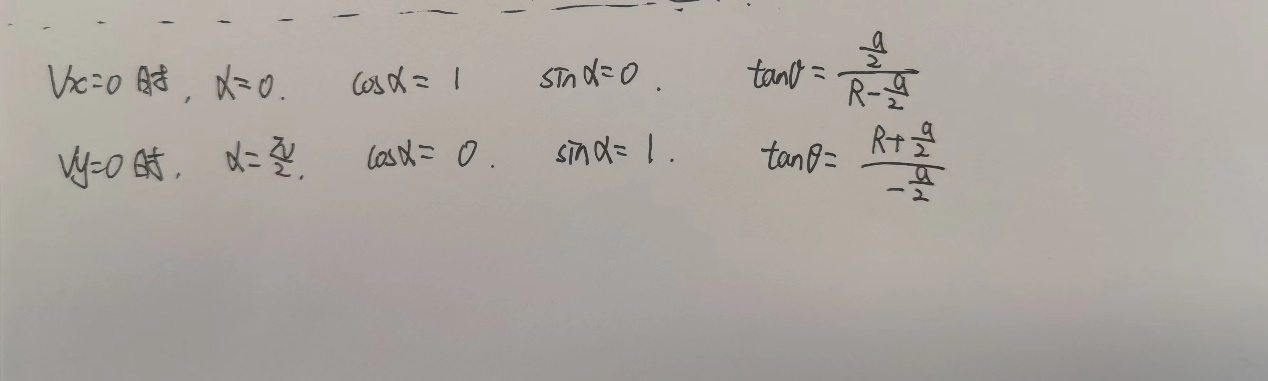 Vx=0 时, α=0. cosα=1 sinα=0. tanθ=\frac{\frac{a}{2}}{R-\frac{a}{2}}
Vy=0 时. α=\frac{π}{2}. cosα=0. sinα=1. tanθ=\frac{R+\frac{a}{2}}{-\frac{a}{2}}